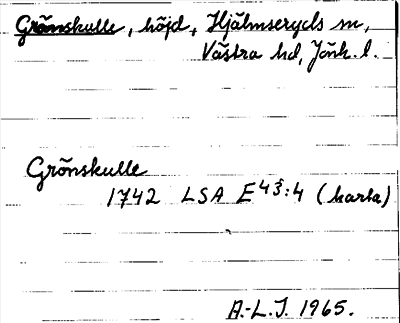 Grönskulle, höjd, Hjälmseryds sn,
Västra hd, Jönk. l.
Grönskulle
1742 LSA E 43:4 (karta)
A.-L.J. 1965.